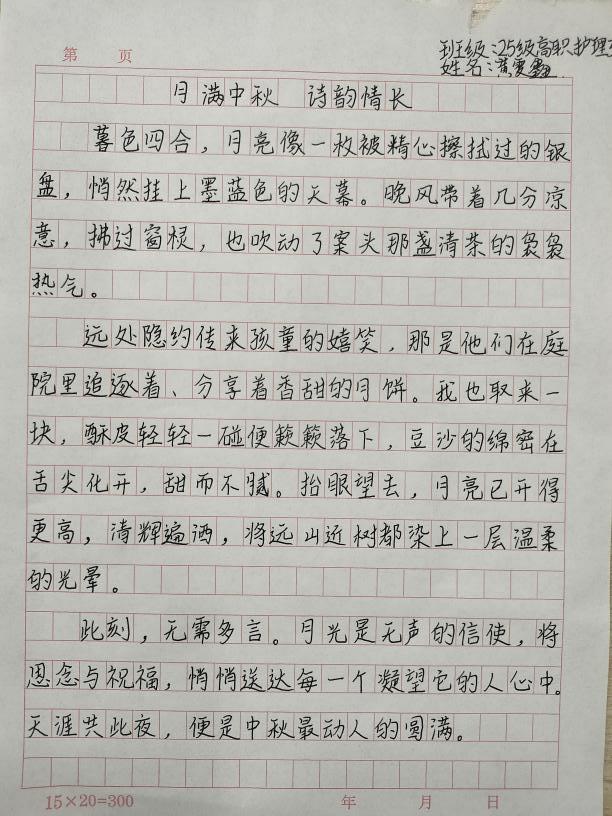 第 页
班级:25级高职护理
姓名:
月满中秋 诗韵情长
暮色四合，月亮像一枚被精心擦拭过的银
盘，悄然挂上墨蓝色的天幕。晚风带着几分凉
意，拂过窗棂，也吹动了案头那盏清茶的袅袅
热气。
远处隐约传来孩童的嬉笑，那是他们在庭
院里追逐着、分享着香甜的月饼。我也取来一
块，酥皮轻轻一碰便簌簌落下，豆沙的绵密在
舌尖化开，甜而不腻。抬眼望去，月亮已升得
更高，清辉遍洒，将远山近树都染上一层温柔
的光晕。
此刻，无需多言。月光是无声的信使，将
恩念与祝福，悄悄送达每一个凝望它的人心中。
天涯共此夜，便是中秋最动人的圆满。
15×20=300
年 月 日